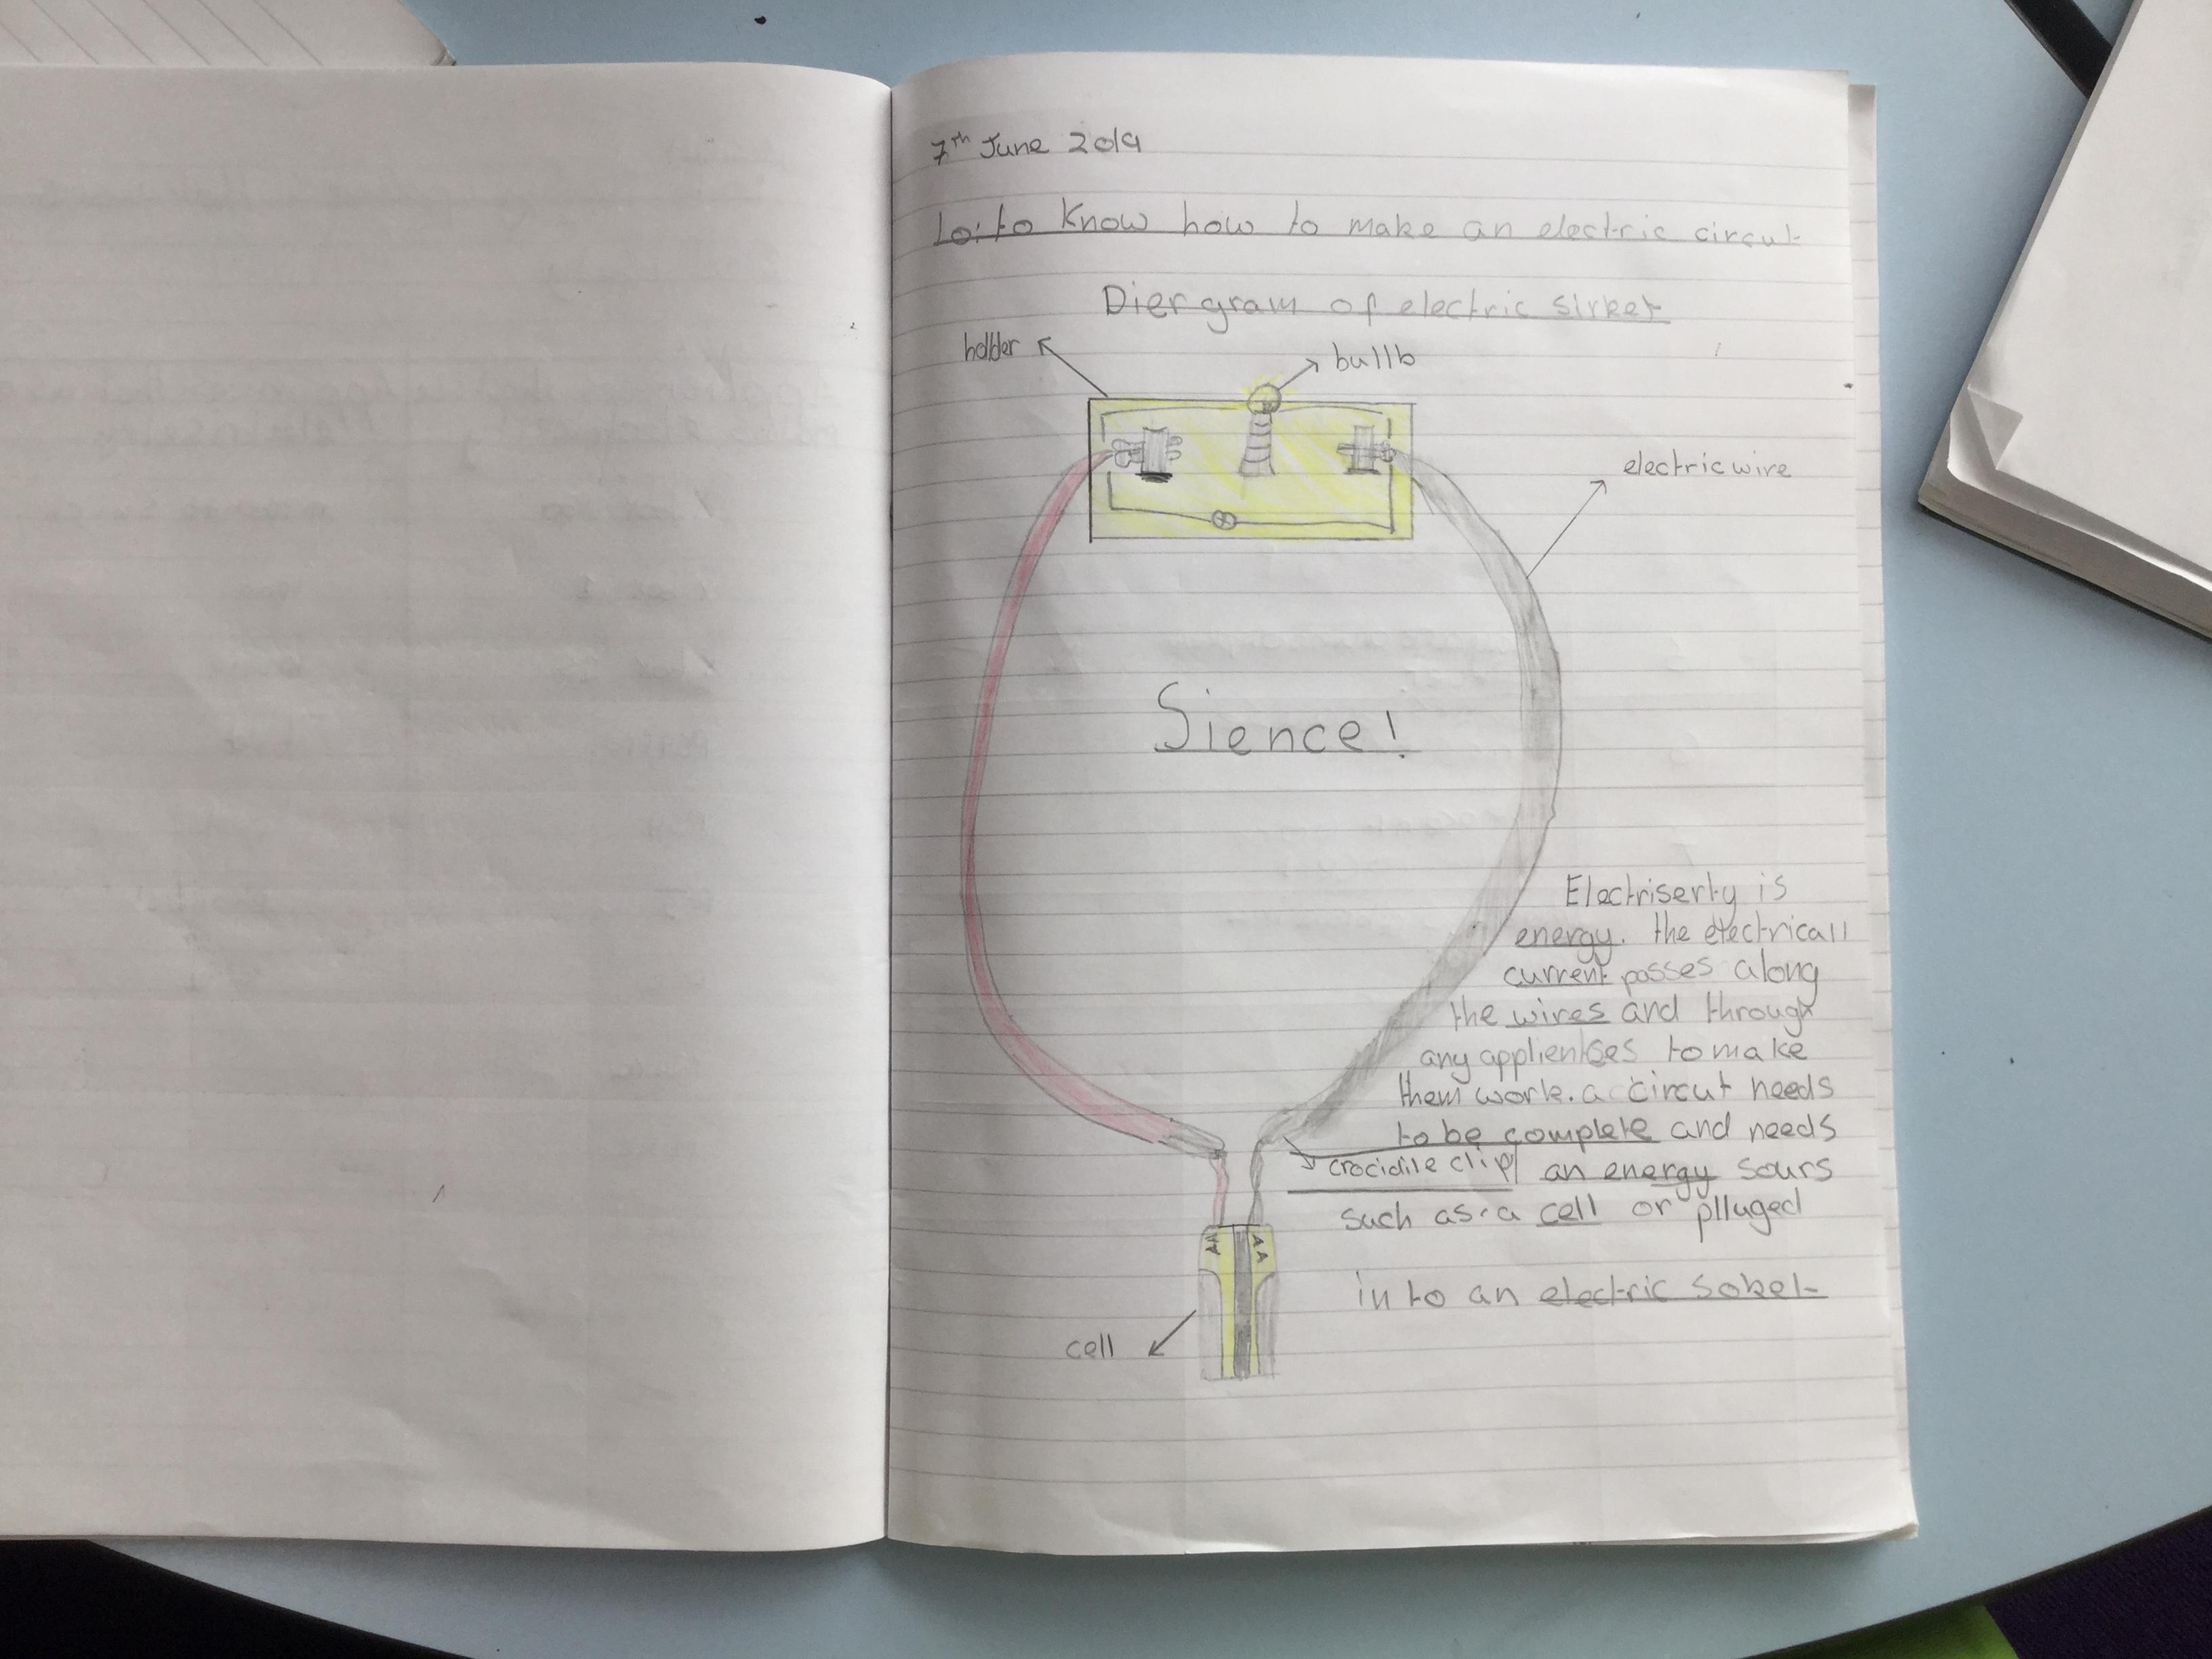 7th June 2019
Lo: to know how to make an electric circut
Diergram of electric sirket
holder
bullb
electric wire
Sience!
Electriserty is
energy. the electricall
current passes along
the wires and through
any applientses to make
them work. a circut needs
to be complete and needs
crocidile clip
an energy sours
such as a cell or plluged
in to an electric soket
AA
AA
cell